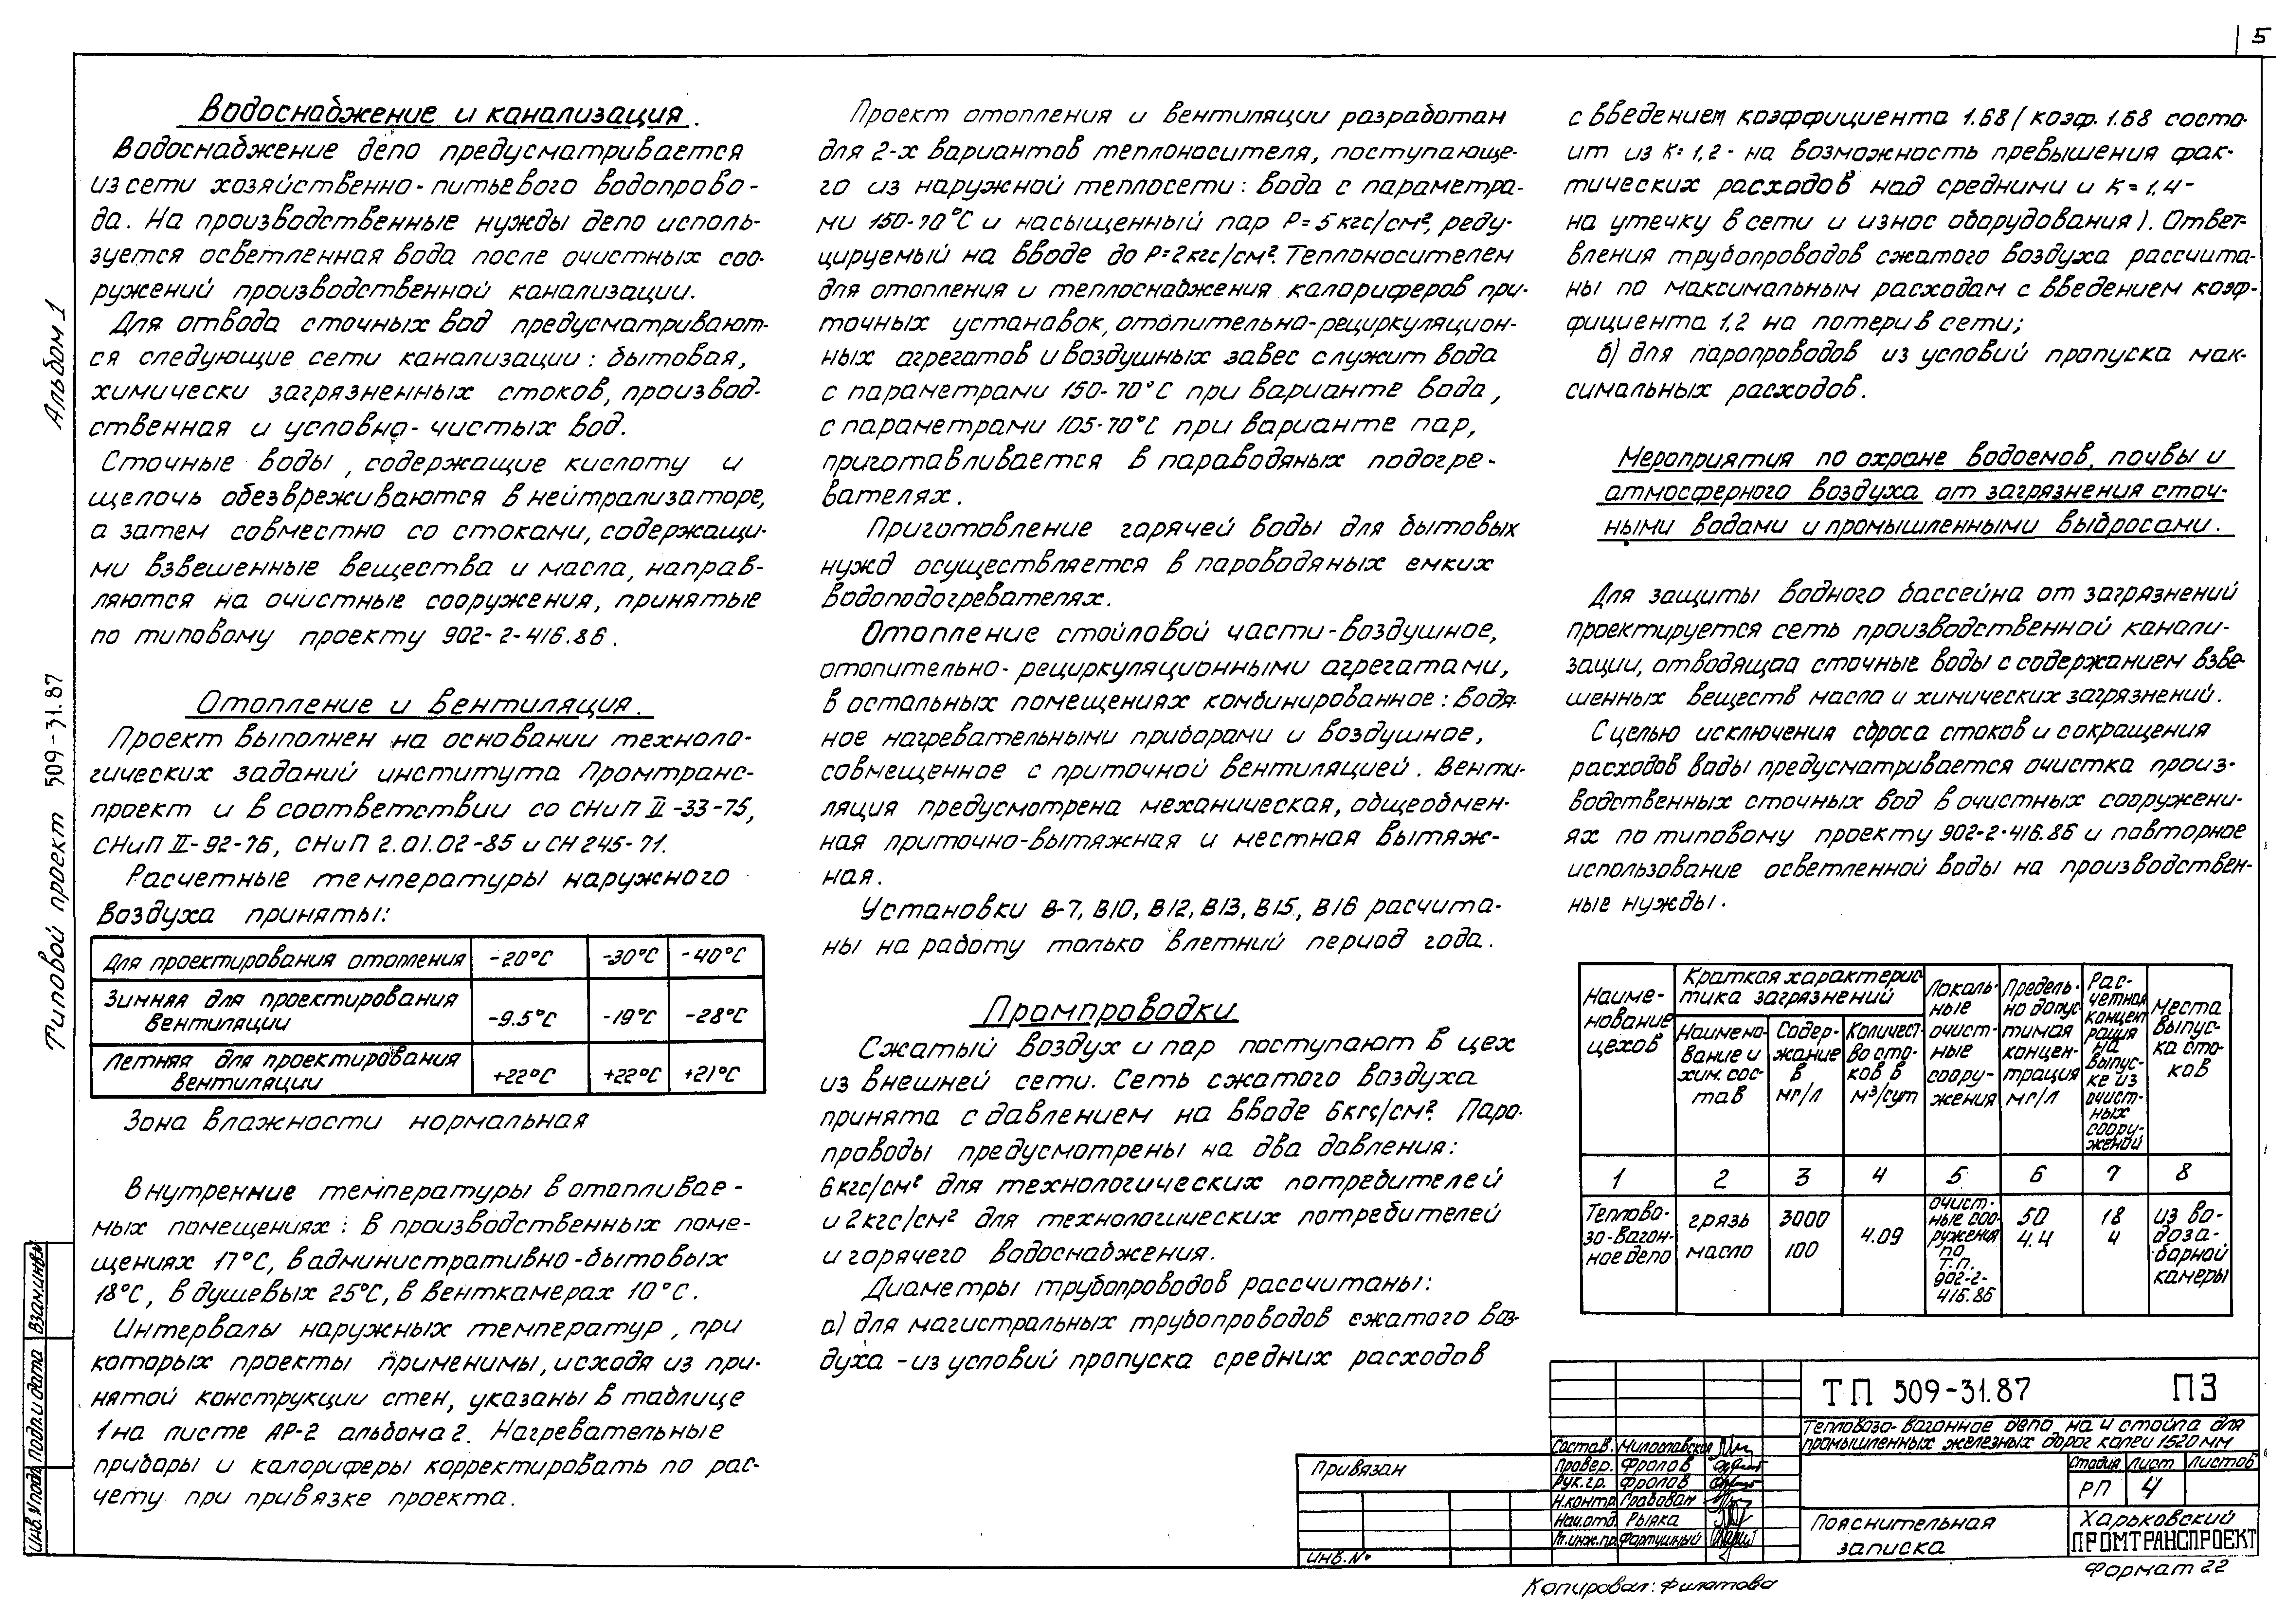 5
Альбом 1
Типовой проект 509-31.87
Водоснабжение и канализация.
Водоснабжение депо предусматривается
из сети хозяйственно-питьевого водопрово-
да. На производственные нужды депо исполь-
зуется осветленная вода после очистных соо-
ружений производственной канализации.
Для отвода сточных вод предусматривают-
ся следующие сети канализации: бытовая,
химически загрязненных стоков, производ-
ственная и условно-чистых вод.
Сточные воды, содержащие кислоту и
щелочь обезвреживаются в нейтрализаторе,
а затем совместно со стоками, содержащи-
ми взвешенные вещества и масла, направ-
ляются на очистные сооружения, принятые
по типовому проекту 902-2-416.86.
Отопление и вентиляция.
Проект выполнен на основании техноло-
гических заданий института Промтранс-
проект и в соответствии со СНиП II-33-75,
СНиП II-92-76, СНиП 2.01.02-85 и СН 245-71.
Расчетные температуры наружного
воздуха приняты:
Для проектирования отопления -20°С -30°С -40°С
Зимняя для проектирования
вентиляции -9.5°С -19°С -28°С
Летняя для проектирования
вентиляции +22°С +22°С +21°С
Зона влажности нормальная
Внутренние температуры в отапливае-
мых помещениях: в производственных поме-
щениях 17°С, в административно-бытовых
18°С, в душевых 25°С, в венткамерах 10°С.
Интервалы наружных температур, при
которых проекты применимы, исходя из при-
нятой конструкции стен, указаны в таблице
1 на листе АР-2 альбома 2. Нагревательные
приборы и калориферы корректировать по рас-
чету при привязке проекта.
Проект отопления и вентиляции разработан
для 2-х вариантов теплоносителя, поступающе-
го из наружной теплосети: вода с параметра-
ми 150-70°С и насыщенный пар Р=5кгс/см², реду-
цируемый на вводе до Р=2кгс/см². Теплоносителем
для отопления и теплоснабжения калориферов при-
точных установок, отопительно-рециркуляцион-
ных агрегатов и воздушных завес служит вода
с параметрами 150-70°С при варианте вода,
с параметрами 105-70°С при варианте пар,
приготавливается в параводяных подогре-
вателях.
Приготовление горячей воды для бытовых
нужд осуществляется в пароводяных емких
водоподогревателях.
Отопление стойловой части-воздушное,
отопительно-рециркуляционными агрегатами,
в остальных помещениях комбинированное: водя-
ное нагревательными приборами и воздушное,
совмещенное с приточной вентиляцией. Венти-
ляция предусмотрена механическая, общеобмен-
ная приточно-вытяжная и местная вытяж-
ная.
Установки В-7, В10, В12, В13, В15, В16 расчита-
ны на работу только в летний период года.
Промпроводки
Сжатый воздух и пар поступают в цех
из внешней сети. Сеть сжатого воздуха
принята с давлением на вводе 6кгс/см². Паро-
проводы предусмотрены на два давления:
6кгс/см² для технологических потребителей
и 2кгс/см² для технологических потребителей
и горячего водоснабжения.
Диаметры трубопроводов рассчитаны:
а) для магистральных трубопроводов сжатого воз-
духа - из условий пропуска средних расходов
с введением коэффициента 1.68 (коэф. 1.68 состо-
ит из К=1,2- на возможность превышения фак-
тических расходов над средними и К=1,4-
на утечку в сети и износ оборудования). Ответ-
вления трубопроводов сжатого воздуха рассчита-
ны по максимальным расходам с введением коэф-
фициента 1,2 на потери в сети;
б) для паропроводов из условий пропуска мак-
симальных расходов.
Мероприятия по охране водоемов, почвы и
атмосферного воздуха от загрязнения сточ-
ными водами и промышленными выбросами.
Для защиты водного бассейна от загрязнений
проектируется сеть производственной канали-
зации, отводящая сточные воды с содержанием взве-
шенных веществ масла и химических загрязнений.
С целью исключения сброса стоков и сокращения
расходов воды предусматривается очистка произ-
водственных сточных вод в очистных сооружени-
ях по типовому проекту 902-2-416.86 и повторное
использование осветленной воды на производствен-
ные нужды.
Наиме-
нование
цехов
Краткая характерис-
тика загрязнений
Наимено-
вание и
хим. сос-
тав
Содер-
жание
в
мг/л
Количест-
во сто-
ков в
м³/сут
Локаль-
ные
очист-
ные
соору-
жения
Предель-
но допус-
тимая
концен-
трация
мг/л
Рас-
четная
концент-
рация
на
выпус-
ке из
очист-
ных
соору-
жений
Места
выпус-
ка сто-
ков
1 2 3 4 5 6 7 8
Теплово-
зо-вагон-
ное депо
грязь
масло
3000
100
4.09
очист-
ные соо-
ружения
по
т.п.
902-2-
416.86
50
4.4
18
4
из во-
доза-
борной
камеры
ТП 509-31.87 ПЗ
Тепловозо-вагонное депо на 4 стойла для
промышленных железных дорог колеи 1520 мм
Состав. Милославская
Провер. Фролов
Рук.гр. Фролов
Н.контр. Грабован
Нач.отд. Рыпка
Гл.инж.пр. Фартушный
Стадия Лист Листов
РП 4
Пояснительная
записка
Харьковский
ПРОМТРАНСПРОЕКТ
Привязан
Инв.№
Инв.№подл. Подп. и дата Взам.инв.№
Копировал: Филатова
Формат 22